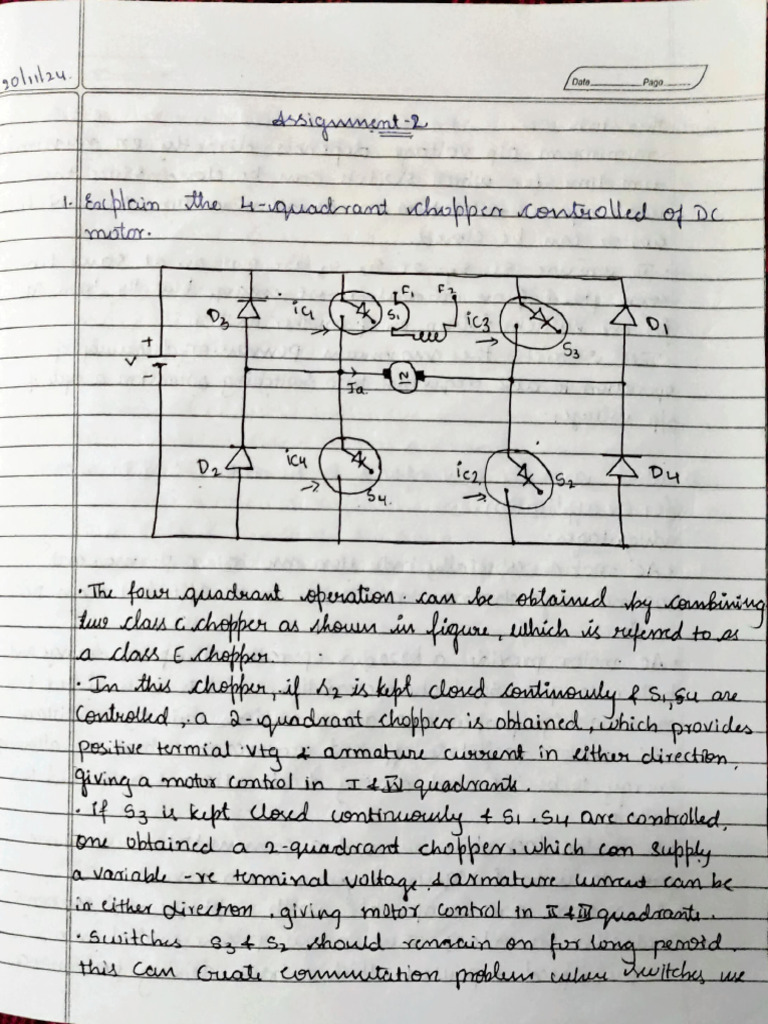 20/11/24.
Date Page
Assignment-2
1. Explain the 4-quadrant chopper controlled of DC
motor.
D3
ic1
S1
F1
F2
ic3
S3
D1
+
V
-
Ia
N
D2
ic4
S4.
ic2
S2
D4
• The four quadrant operation can be obtained by combining
two class C chopper as shown in figure, which is referred to as
a class E chopper.
• In this chopper, if S2 is kept closed continously & S1, S4 are
controlled, a 2-quadrant chopper is obtained, which provides
positive termial vtg & armature current in either direction,
giving a motor control in I & IV quadrants.
• if S3 is kept closed continuously & S1, S4 are controlled,
one obtained a 2-quadrant chopper, which can supply
a variable -ve terminal voltage & armature current can be
in either direction, giving motor control in II & III quadrants.
• switches S3 & S2 should remain on for long peroid.
this can create commutation problem when switches use